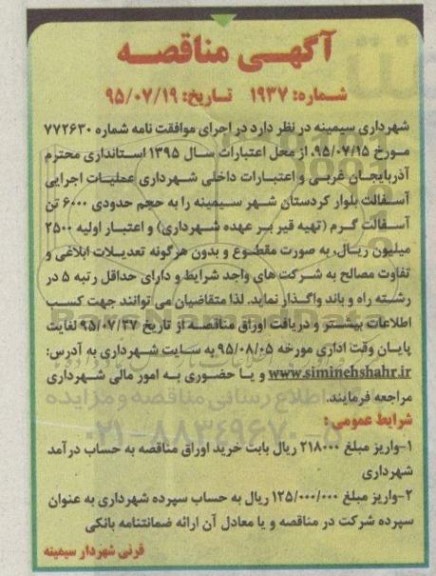 آگهی مناقصه
شماره: ۱۹۳۷ تاریخ: ۹۵/۰۷/۱۹
شهرداری سیمینه در نظر دارد در اجرای موافقت نامه شماره ۷۷۲۶۳۰
مورخ ۹۵/۰۷/۱۵، از محل اعتبارات سال ۱۳۹۵ استانداری محترم
آذربایجان غربی و اعتبارات داخلی شهرداری عملیات اجرایی
آسفالت بلوار کردستان شهر سیمینه را به حجم حدودی ۶۰۰۰ تن
آسفالت گرم (تهیه قیر بر عهده شهرداری) و اعتبار اولیه ۲۵۰۰
میلیون ریال، به صورت مقطوع و بدون هرگونه تعدیلات ابلاغی و
تفاوت مصالح به شرکت های واجد شرایط و دارای حداقل رتبه ۵ در
رشته راه و باند واگذار نماید. لذا متقاضیان می توانند جهت کسب
اطلاعات بیشتر و دریافت اوراق مناقصه از تاریخ ۹۵/۰۷/۲۷ لغایت
پایان وقت اداری مورخه ۹۵/۰۸/۰۵ به سایت شهرداری به آدرس:
www.siminehshahr.ir و یا حضوری به امور مالی شهرداری
مراجعه فرمایند.
شرایط عمومی:
۱-واریز مبلغ ۲۱۸۰۰۰ ریال بابت خرید اوراق مناقصه به حساب درآمد
شهرداری
۲-واریز مبلغ ۱۲۵/۰۰۰/۰۰۰ ریال به حساب سپرده شهرداری به عنوان
سپرده شرکت در مناقصه و یا معادل آن ارائه ضمانتنامه بانکی
قرنی شهردار سیمینه
ParsNamadData
اطلاع رسانی مناقصه و مزایده
۰۲۱-۸۸۳۴۹۶۷۰